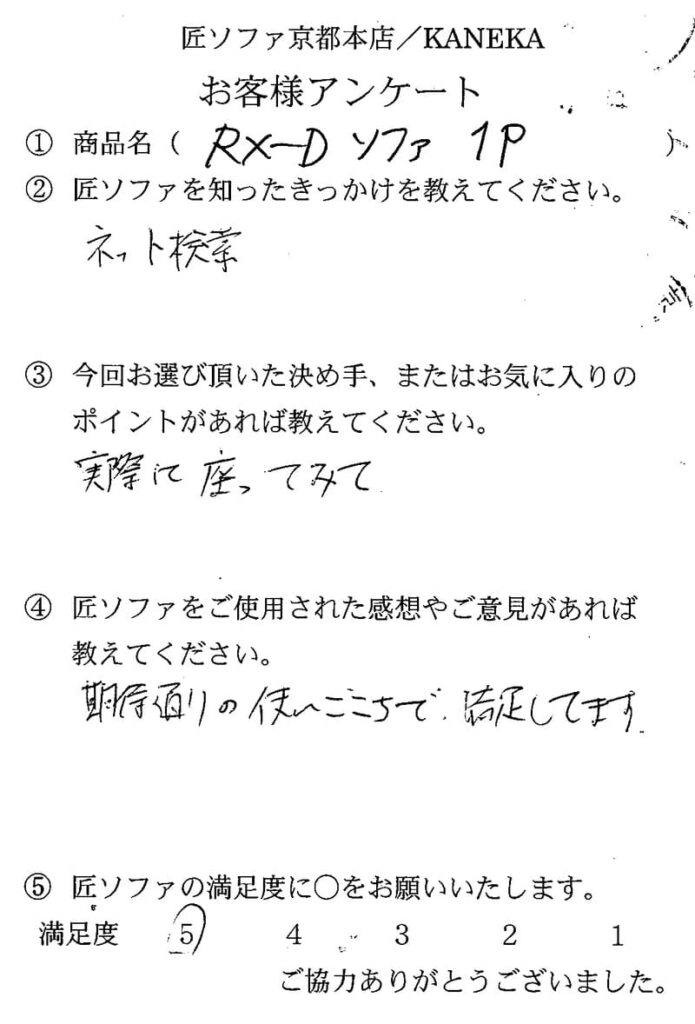 匠ソファ京都本店／KANEKA
お客様アンケート
① 商品名（ RX-D ソファ 1P ）
② 匠ソファを知ったきっかけを教えてください。
ネット検索
③ 今回お選び頂いた決め手、またはお気に入りの
ポイントがあれば教えてください。
実際に座ってみて
④ 匠ソファをご使用された感想やご意見があれば
教えてください。
期待通りの使いごこちで、満足してます
⑤ 匠ソファの満足度に○をお願いいたします。
満足度 5 4 3 2 1
ご協力ありがとうございました。